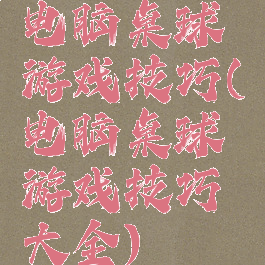 电脑桌球
游戏技巧(
电脑桌球
游戏技巧
大全)